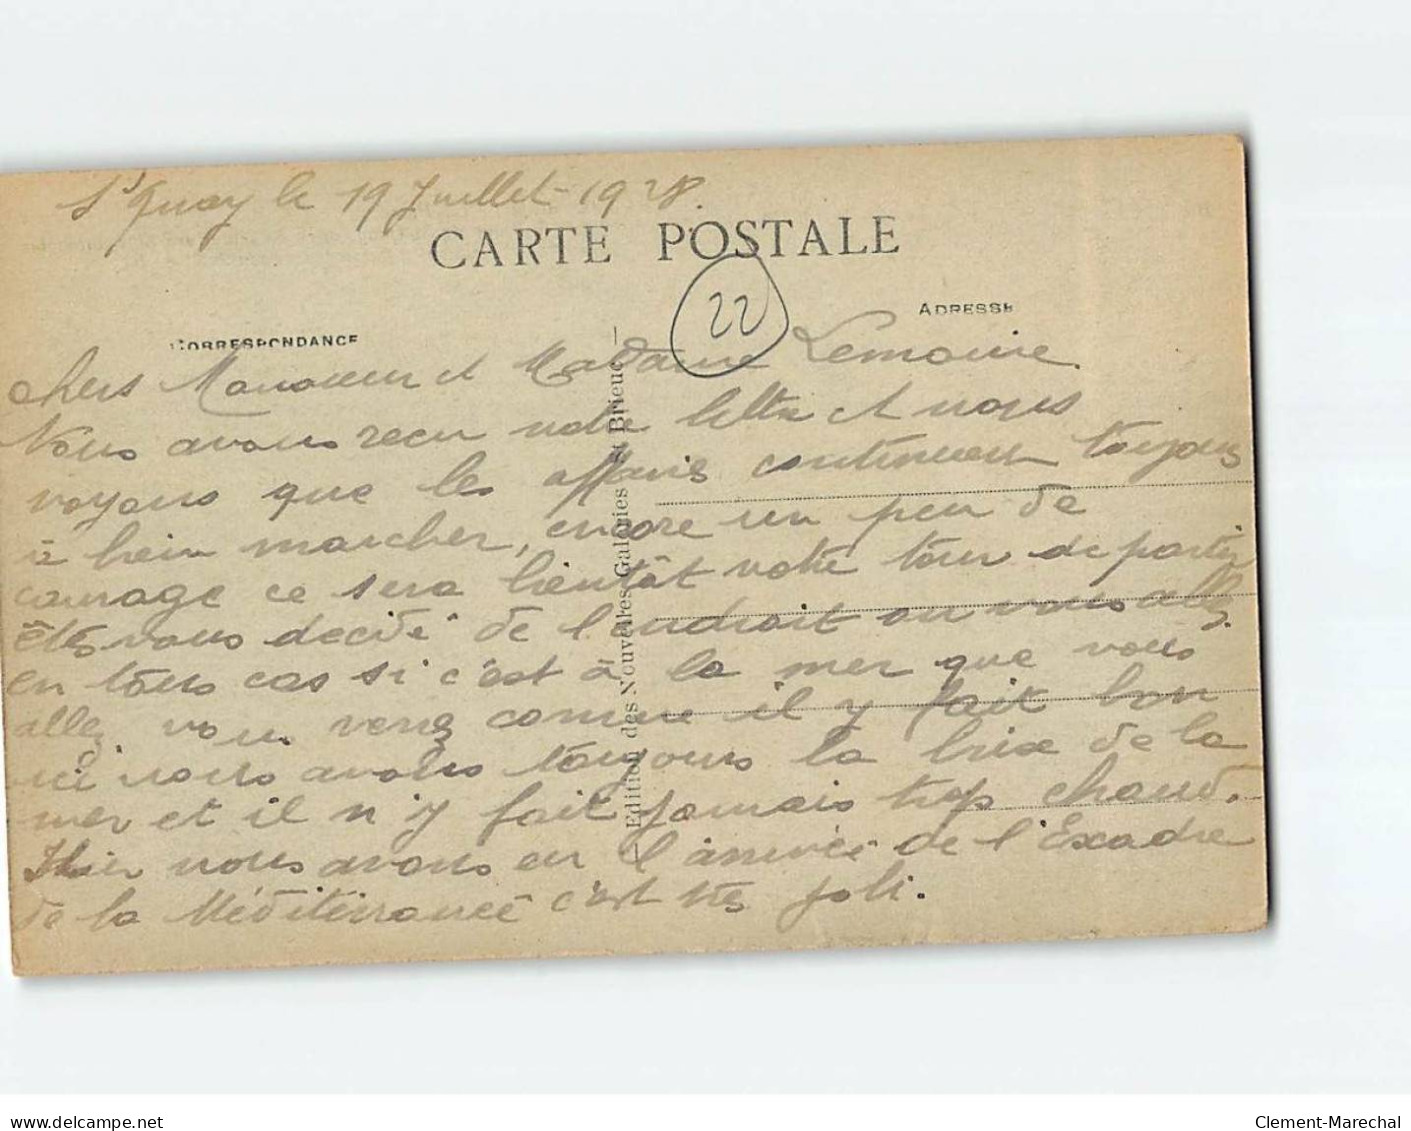 St Quay le 19 Juillet 1928.
CARTE POSTALE
22
CORRESPONDANCE
ADRESSE
chers Monsieur et Madame Lemoine
Nous avons recu votre lettre et nous
voyons que les affaires continuent toujours
à bien marcher, encore un peu de
courage ce sera bientôt votre tour de partir
êtes vous décidé de l'endroit ou vous allez.
en tous cas si c'est à la mer que vous
allez vous verez comme il y fait bon
ici nous avons toujours la brise de la
mer et il n'y fait jamais trop chaud.
Hier nous avons eu l'arrivée de l'Exadre
de la Méditerranée c'est très joli.
— Edition des Nouvelles Galeries St Brieuc —
delcampe.net
Clement-Marechal